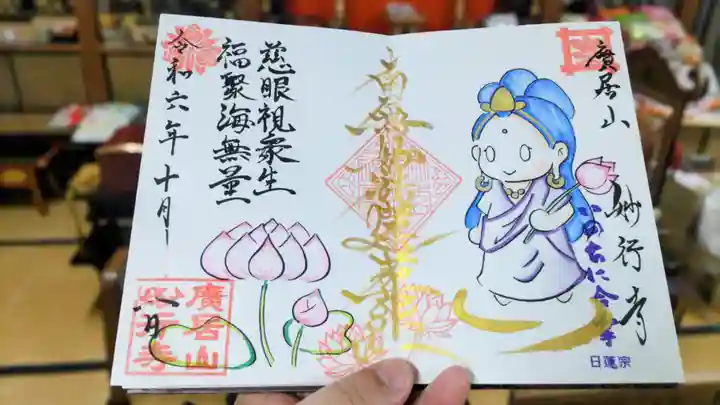 廣居山
妙行寺
いのちに合掌
日蓮宗
南無妙法蓮華経
慈眼視衆生
福聚海無量
令和六年十月一日
廣居山
妙行寺